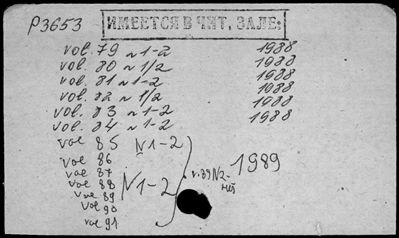 P3653
ИМЕЕТСЯ В ЧИТ. ЗАЛЕ.
vol. 79 N 1-2 1988
vol. 80 N 1/2 1988
vol. 81 N 1-2 1988
vol. 82 N 1/2 1988
vol. 83 N 1-2 1988
vol. 84 N 1-2 1988
vol 85 N1-2
vol 86
vol 87
vol 88 N1-2
vol 89
vol 90
vol 91
v.89 N2- нет
1989